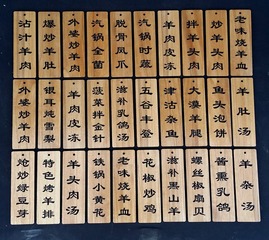 沾汁羊肉
爆炒羊肚
外婆炒羊肉
汽锅全菌
脱骨凤爪
汽锅时蔬
羊肉皮冻
拌羊头肉
炒羊头肉
老味烧羊血
外婆炒羊肉
银耳炖雪梨
羊肉皮冻
菠菜拌金针
滋补乳鸽汤
五谷丰登
津沽杂鱼
大漠羊腿
鱼头泡饼
羊肚汤
炝炒绿豆芽
特色烤羊排
羊头肉汤
铁锅小黄花
老味烧羊血
花椒炒鸡
滋补黑山羊
螺丝椒扇贝
酱熏乳鸽
羊杂汤